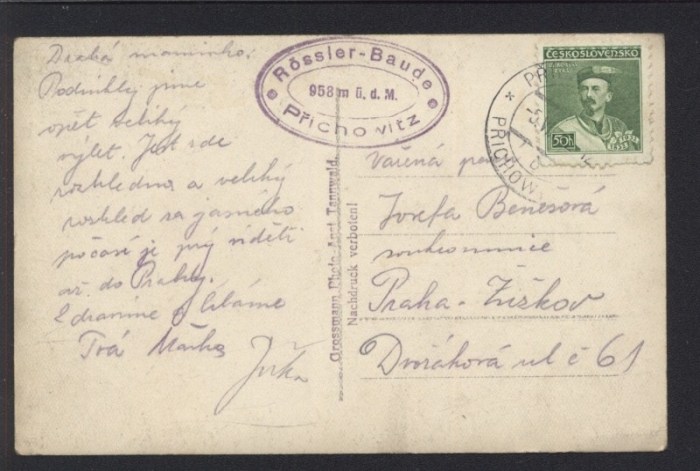 Drahá maminko.
Podnikly jsme
opět veliký
výlet. Jest zde
rozhledna a veliký
rozhled za jasného
počasí je prý viděti
až do Prahy.
Zdravíme a líbáme
Tvá Mařka
Jirka
Rössler-Baude
958 m ü. d. M.
Přichowitz
Grossmann, Photo-Anst. Tannwald.
Nachdruck verboten!
ČESKOSLOVENSKO
50h
PŘICHOW
Vážená paní
Josefa Benešová
soukromnice
Praha - Žižkov
Dvořákova ul č 61